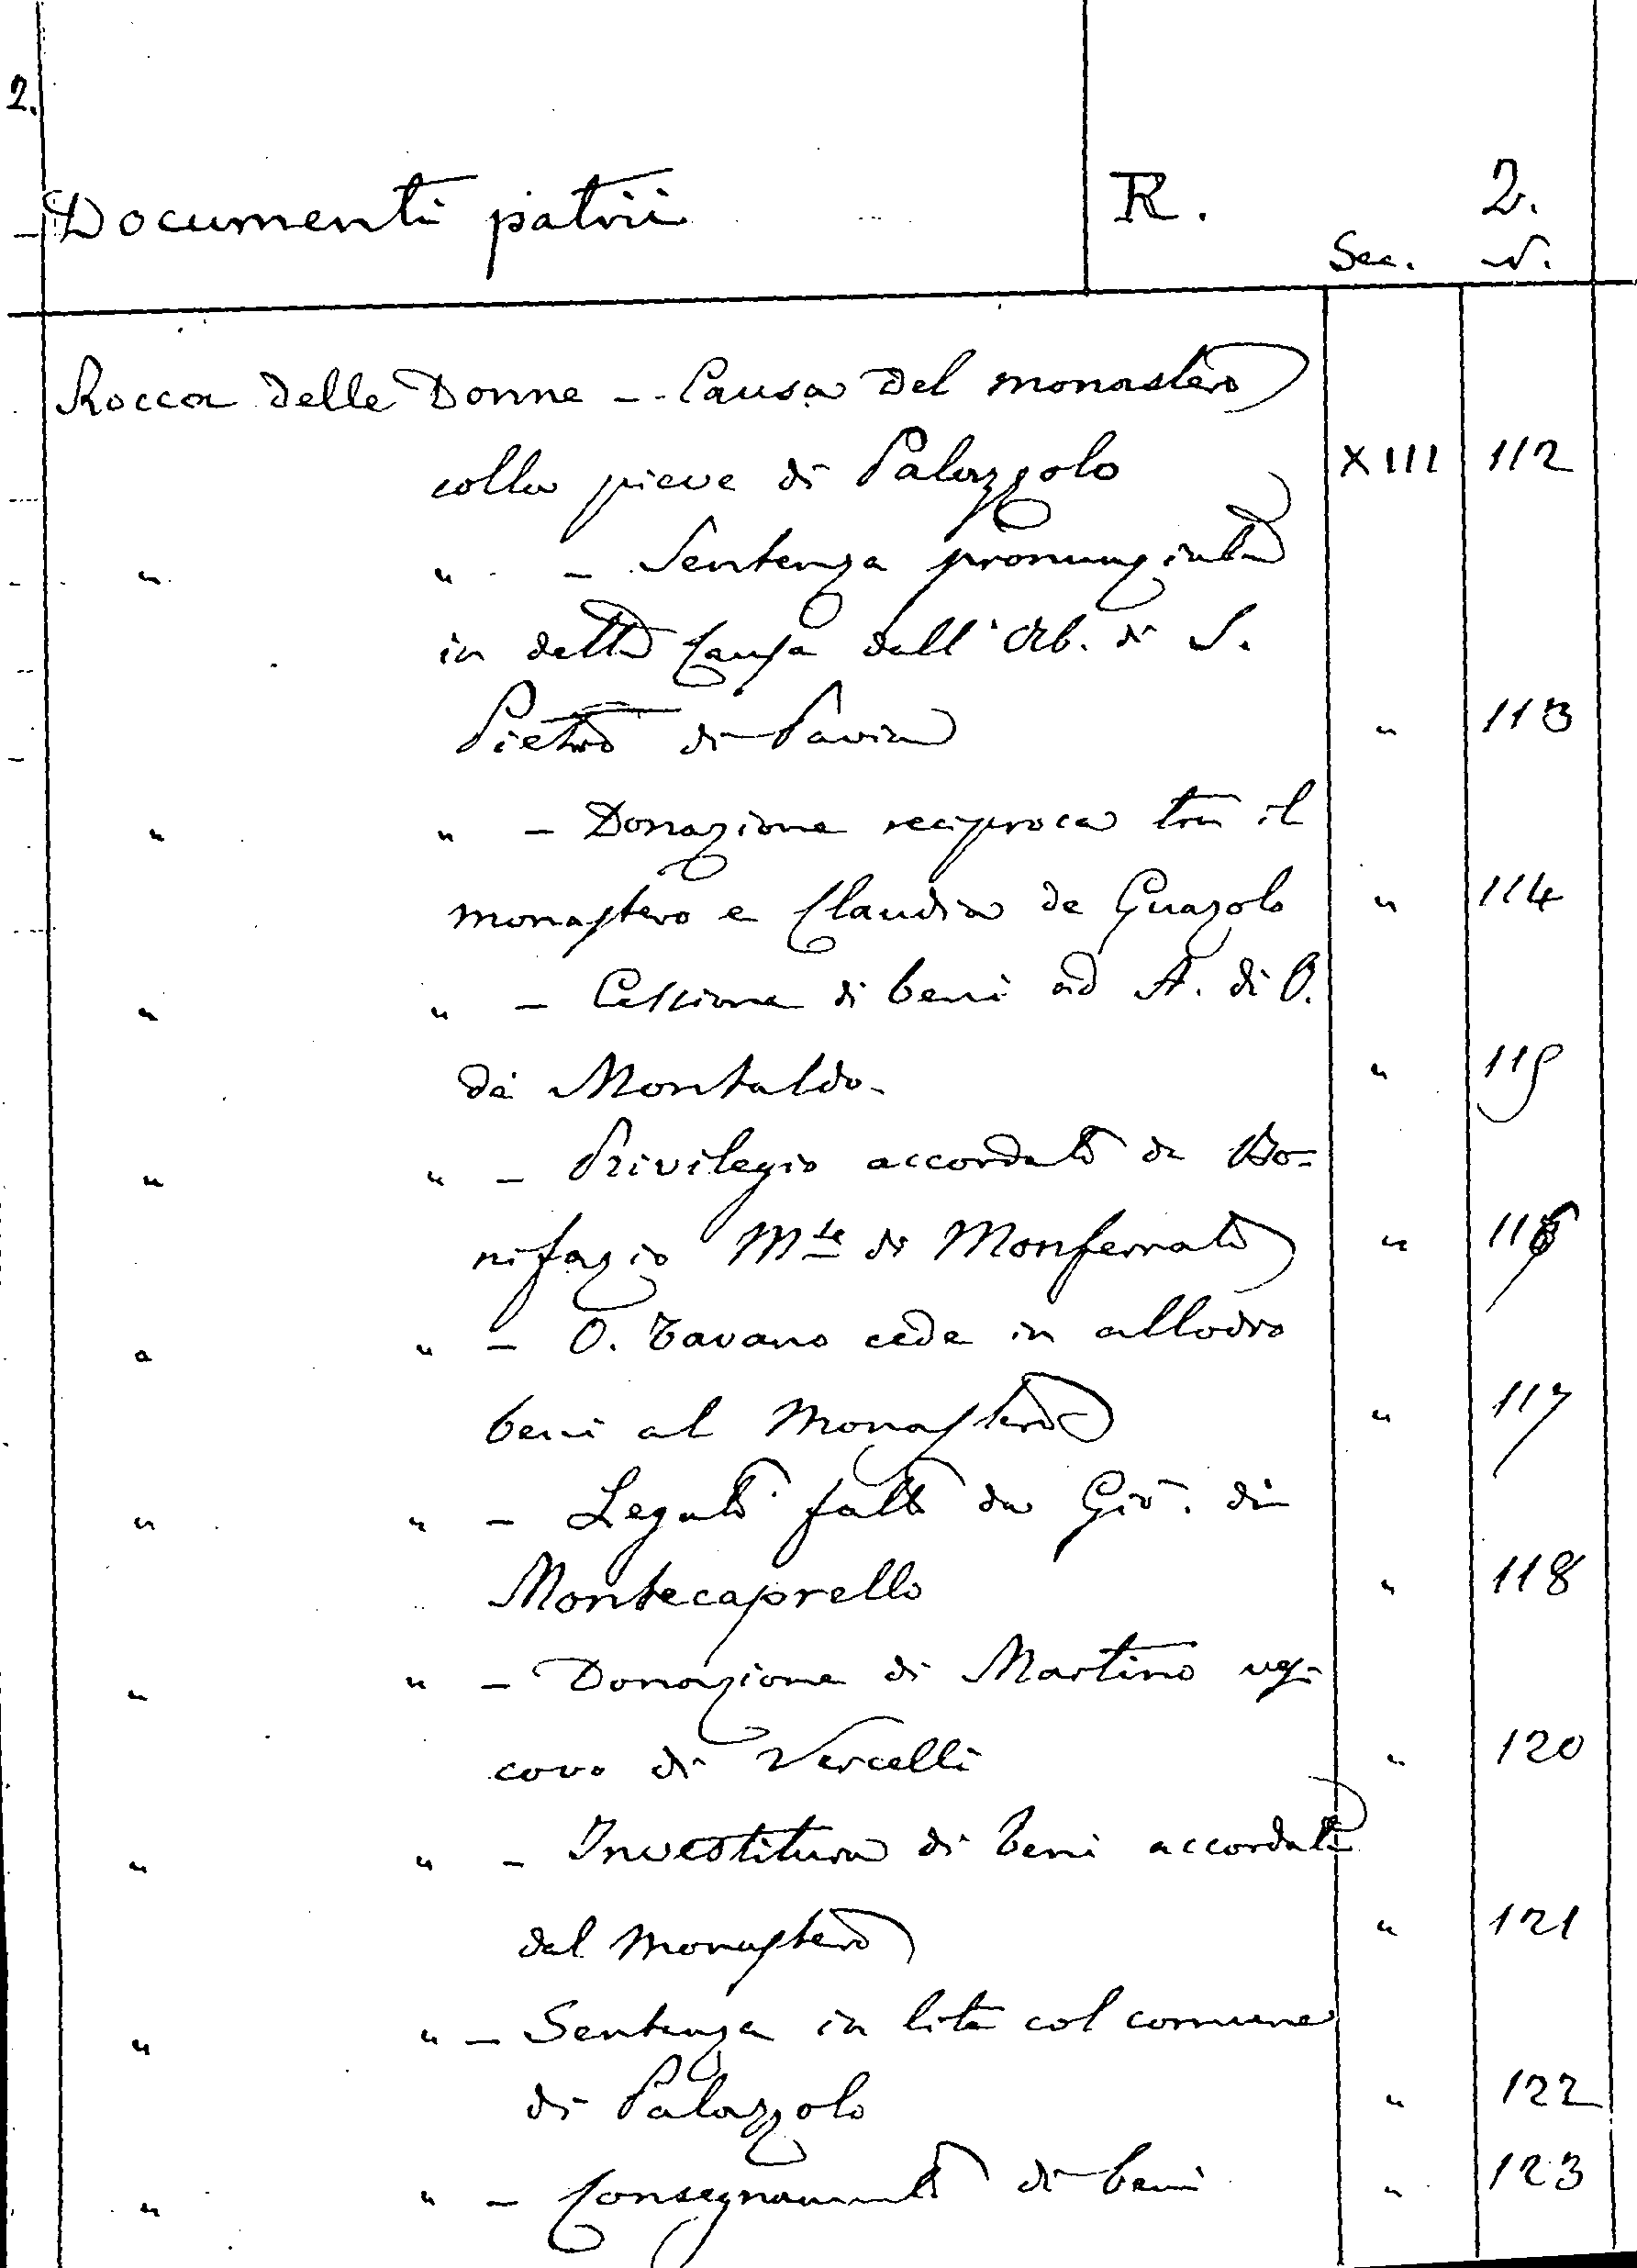 2.
Documenti patrii R. 2.
Sec. N.
Rocca delle Donne - Causa del monastero
colla pieve di Palazzolo XIII 112
" " - Sentenza pronunziata
in detta causa dall'Ab. di S.
Pietro di Pavia " 113
" " - Donazione reciproca tra il
monastero e Claudia de Guazolo " 114
" " - Cessione di beni ad A. di O.
da Montaldo. " 115
" " - Privilegio accordato da Bo=
nifazio Mse di Monferrato " 116
" " - O. Tavano cede in allodio
beni al Monastero " 117
" " - Legato fatto da Gio. di
Montecaprello " 118
" " - Donazione di Martino ves-
covo di Vercelli " 120
" " - Investitura di beni accordata
dal monastero " 121
" " - Sentenza in lite col comune
di Palazzolo " 122
" " - Consegnamento di beni " 123